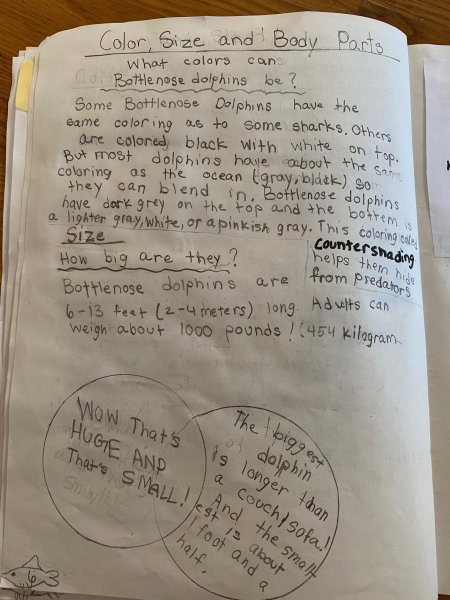 Color, Size and Body Parts
What colors can
Bottlenose dolphins be?
Some Bottlenose Dolphins have the
same coloring as to some sharks. Others
are colored black with white on top.
But most dolphins have about the same
coloring as the ocean (gray, black) so
they can blend in. Bottlenose dolphins
have dark grey on the top and the bottem is
a lighter gray, white, or a pinkish gray. This coloring called
Countershading
helps them hide
from predators
Size
How big are they?
Bottlenose dolphins are
6-13 feet (2-4 meters) long. Adults can
weigh about 1000 pounds! (454 kilogram
WOW That's
HUGE AND
That's SMALL!
The biggest
dolphin
is longer than
a couch/sofa!
And the small
est is about
1 foot and a
half.
6